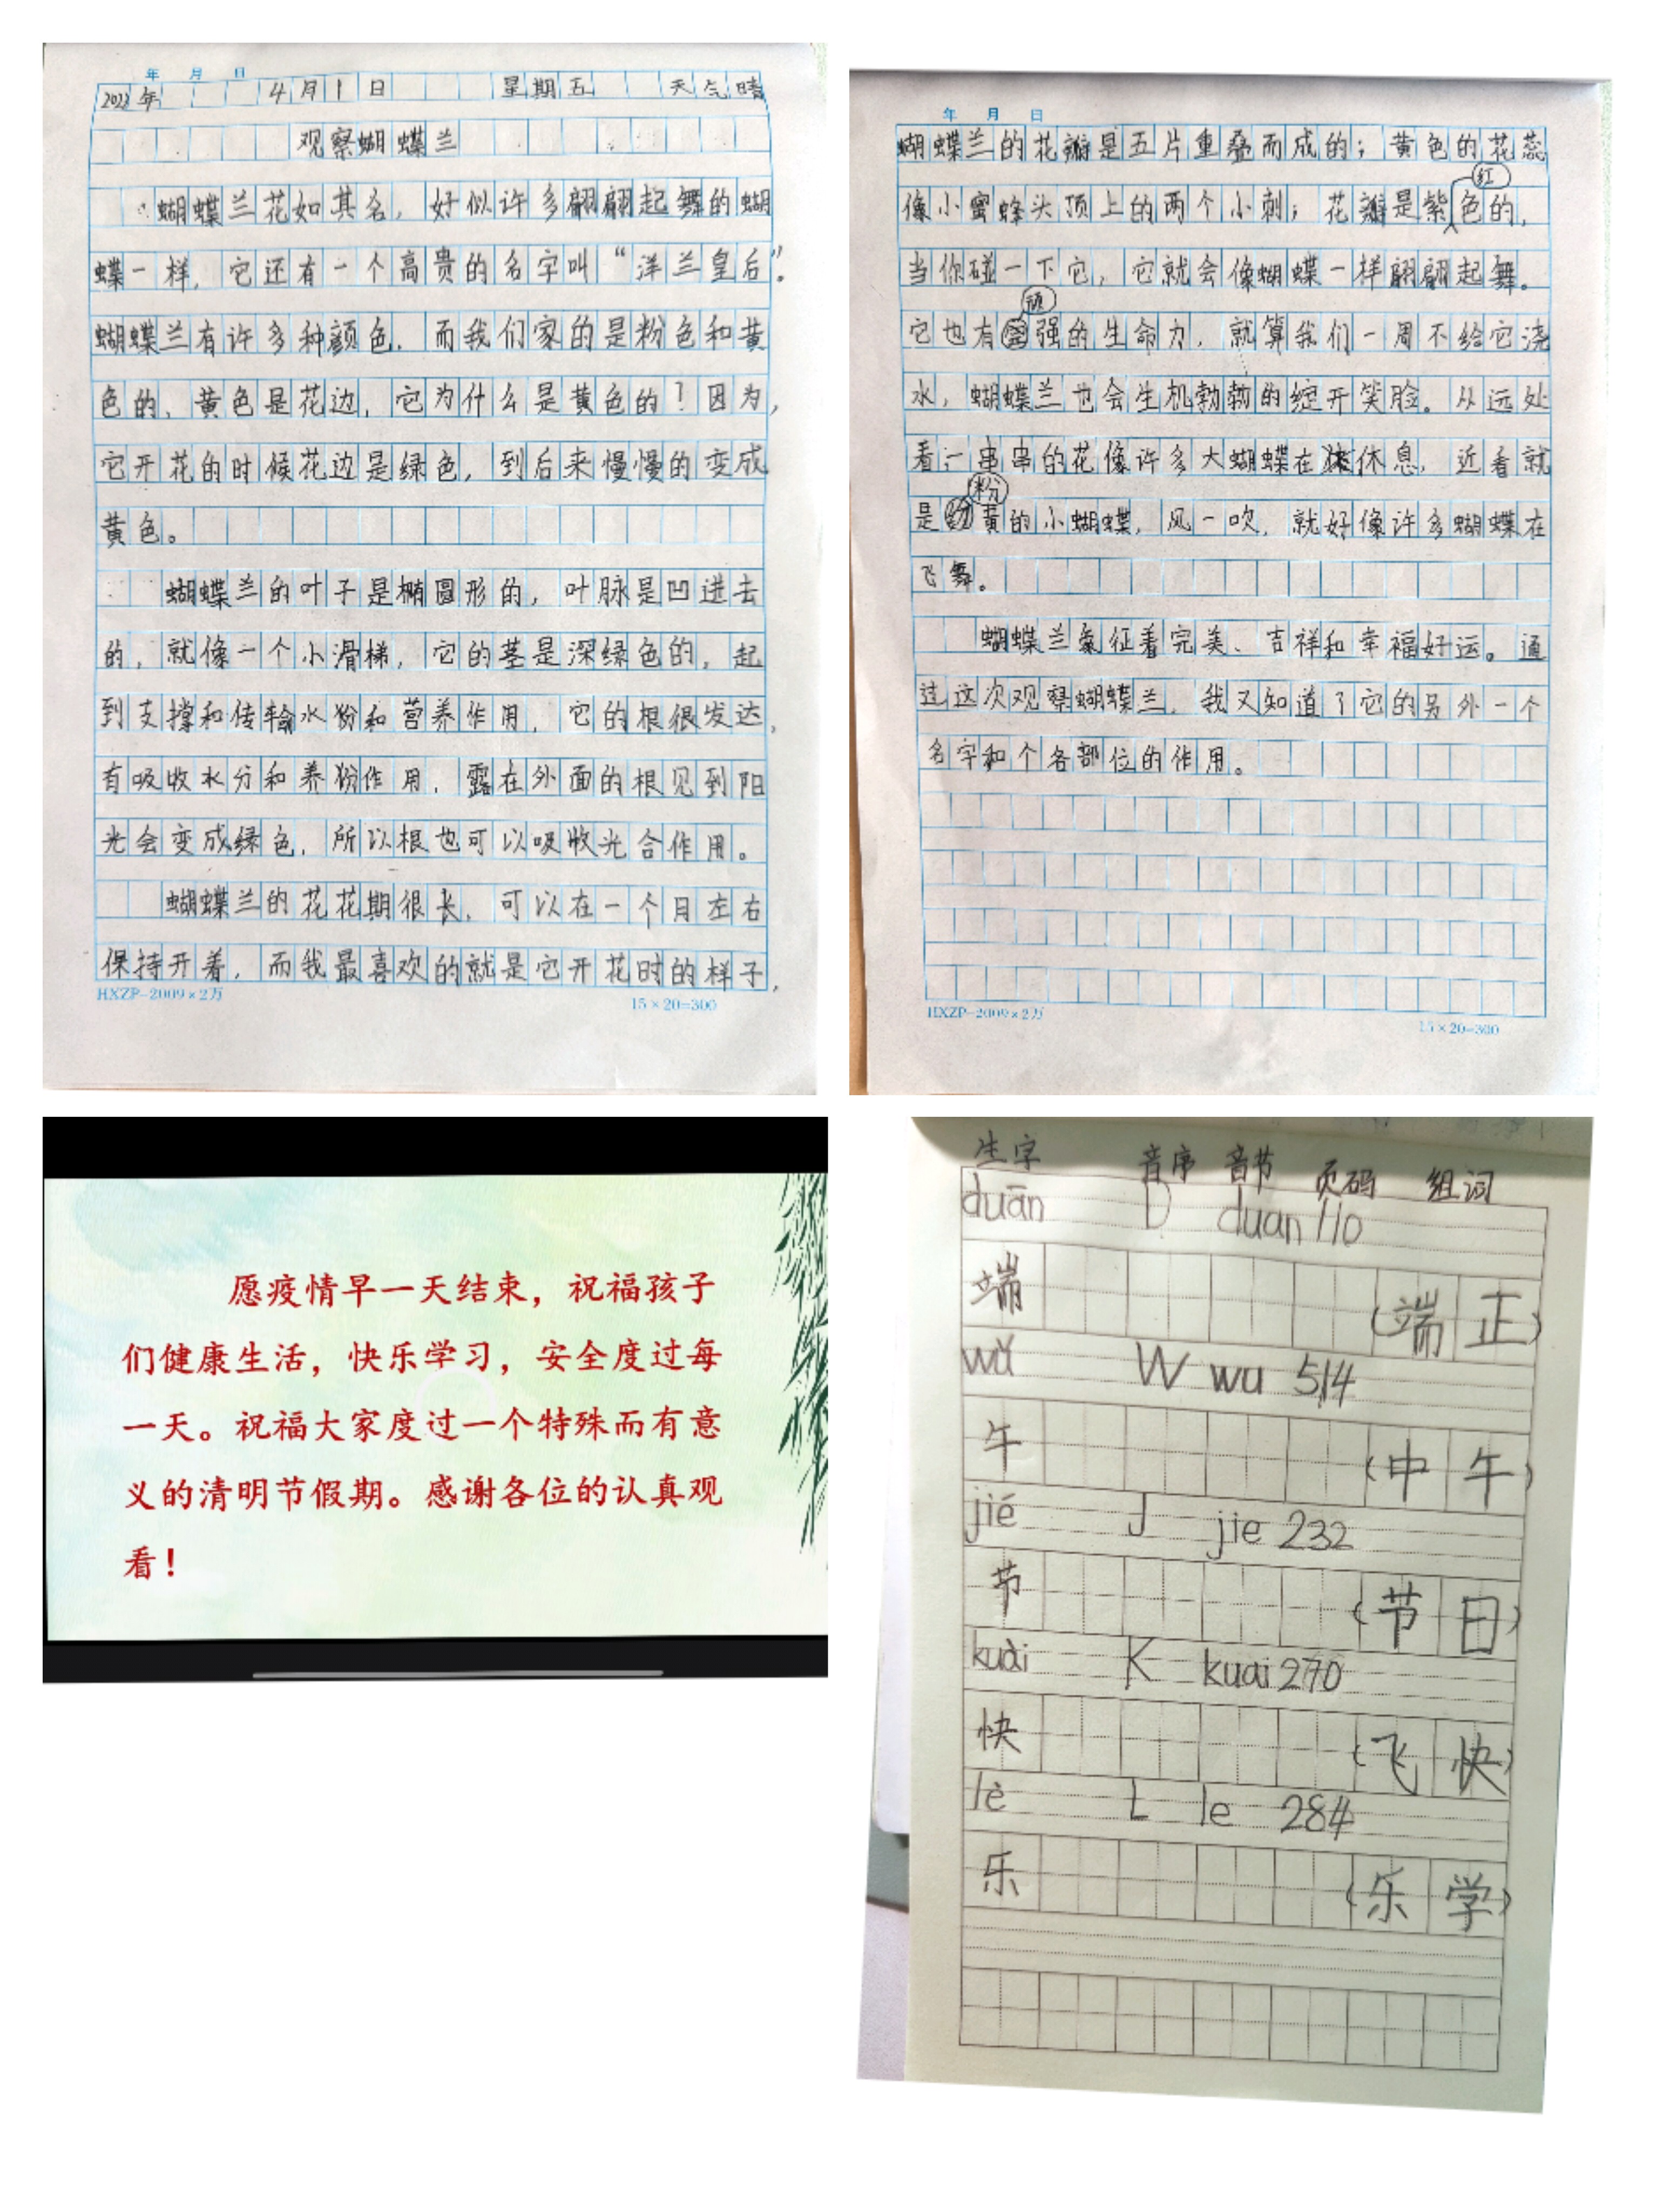 年 月 日
2022年 4月1日 星期五 天气晴
观察蝴蝶兰
蝴蝶兰花如其名，好似许多翩翩起舞的蝴
蝶一样，它还有一个高贵的名字叫“洋兰皇后”。
蝴蝶兰有许多种颜色，而我们家的是粉色和黄
色的，黄色是花边，它为什么是黄色的？因为，
它开花的时候花边是绿色，到后来慢慢的变成
黄色。
蝴蝶兰的叶子是椭圆形的，叶脉是凹进去
的，就像一个小滑梯，它的茎是深绿色的，起
到支撑和传输水份和营养作用，它的根很发达，
有吸收水分和养份作用，露在外面的根见到阳
光会变成绿色，所以根也可以吸收光合作用。
蝴蝶兰的花花期很长，可以在一个月左右
保持开着，而我最喜欢的就是它开花时的样子，
HXZP-2009×2万 15×20=300
年 月 日
蝴蝶兰的花瓣是五片重叠而成的；黄色的花蕊
像小蜜蜂头顶上的两个小刺；花瓣是紫红色的，
当你碰一下它，它就会像蝴蝶一样翩翩起舞。
它也有顽强的生命力，就算我们一周不给它浇
水，蝴蝶兰也会生机勃勃的绽开笑脸。从远处
看，一串串的花像许多大蝴蝶在休息，近看就
是粉黄的小蝴蝶，风一吹，就好像许多蝴蝶在
飞舞。
蝴蝶兰象征着完美、吉祥和幸福好运。通
过这次观察蝴蝶兰，我又知道了它的另外一个
名字和个各部位的作用。
HXZP-2009×2万 15×20=300
愿疫情早一天结束，祝福孩子
们健康生活，快乐学习，安全度过每
一天。祝福大家度过一个特殊而有意
义的清明节假期。感谢各位的认真观
看！
生字 音序 音节 页码 组词
duān D duan 110
端 （端正）
wǔ W wu 514
午 （中午）
jié J jie 232
节 （节日）
kuài K kuai 270
快 （飞快）
lè L le 284
乐 （乐学）